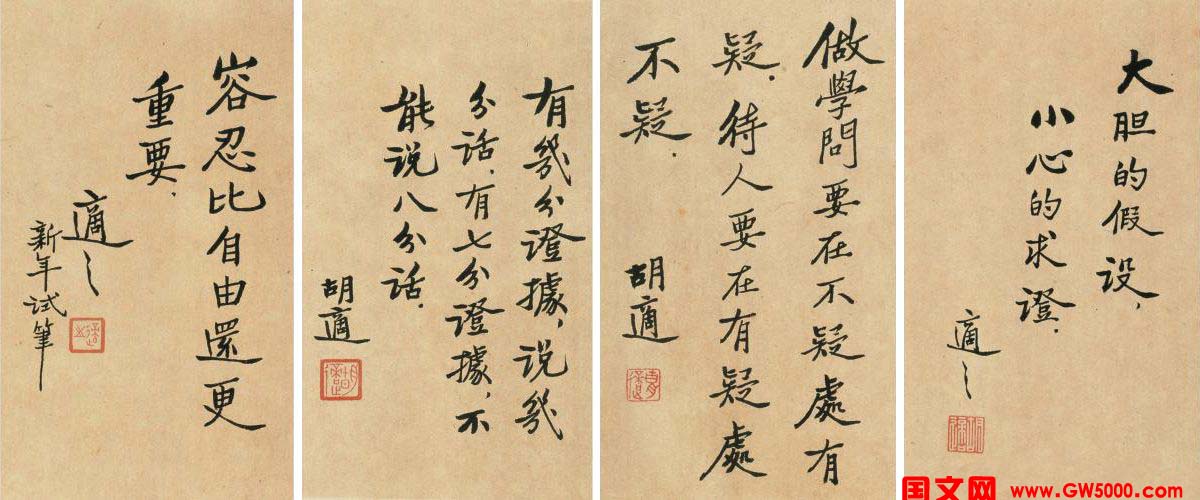 容忍比自由還更
重要．
適之
新年試筆
有幾分證據，说幾
分话，有七分證據，不
能说八分话．
胡適
做學問要在不疑處有
疑．待人要在有疑處
不疑．
胡適
大胆的假设，
小心的求證．
適之
国文网 www.GW5000.com